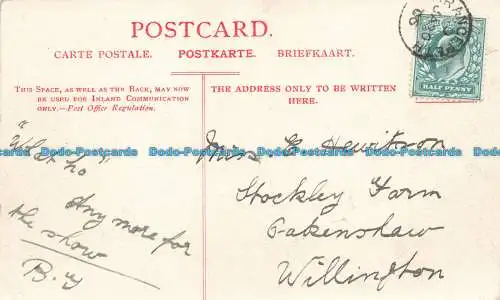 POSTCARD.
CARTE POSTALE. POSTKARTE. BRIEFKAART.
THIS SPACE, AS WELL AS THE BACK, MAY NOW
BE USED FOR INLAND COMMUNICATION
ONLY.—Post Office Regulation.
THE ADDRESS ONLY TO BE WRITTEN
HERE.
HALF PENNY
"What ho"
Any more for
the show
B.y
Miss E Hewitson
Stockley Farm
Oakenshaw
Willington
Dodo-Postcards Dodo-Postcards Dodo-Postcards Dodo-Postcards